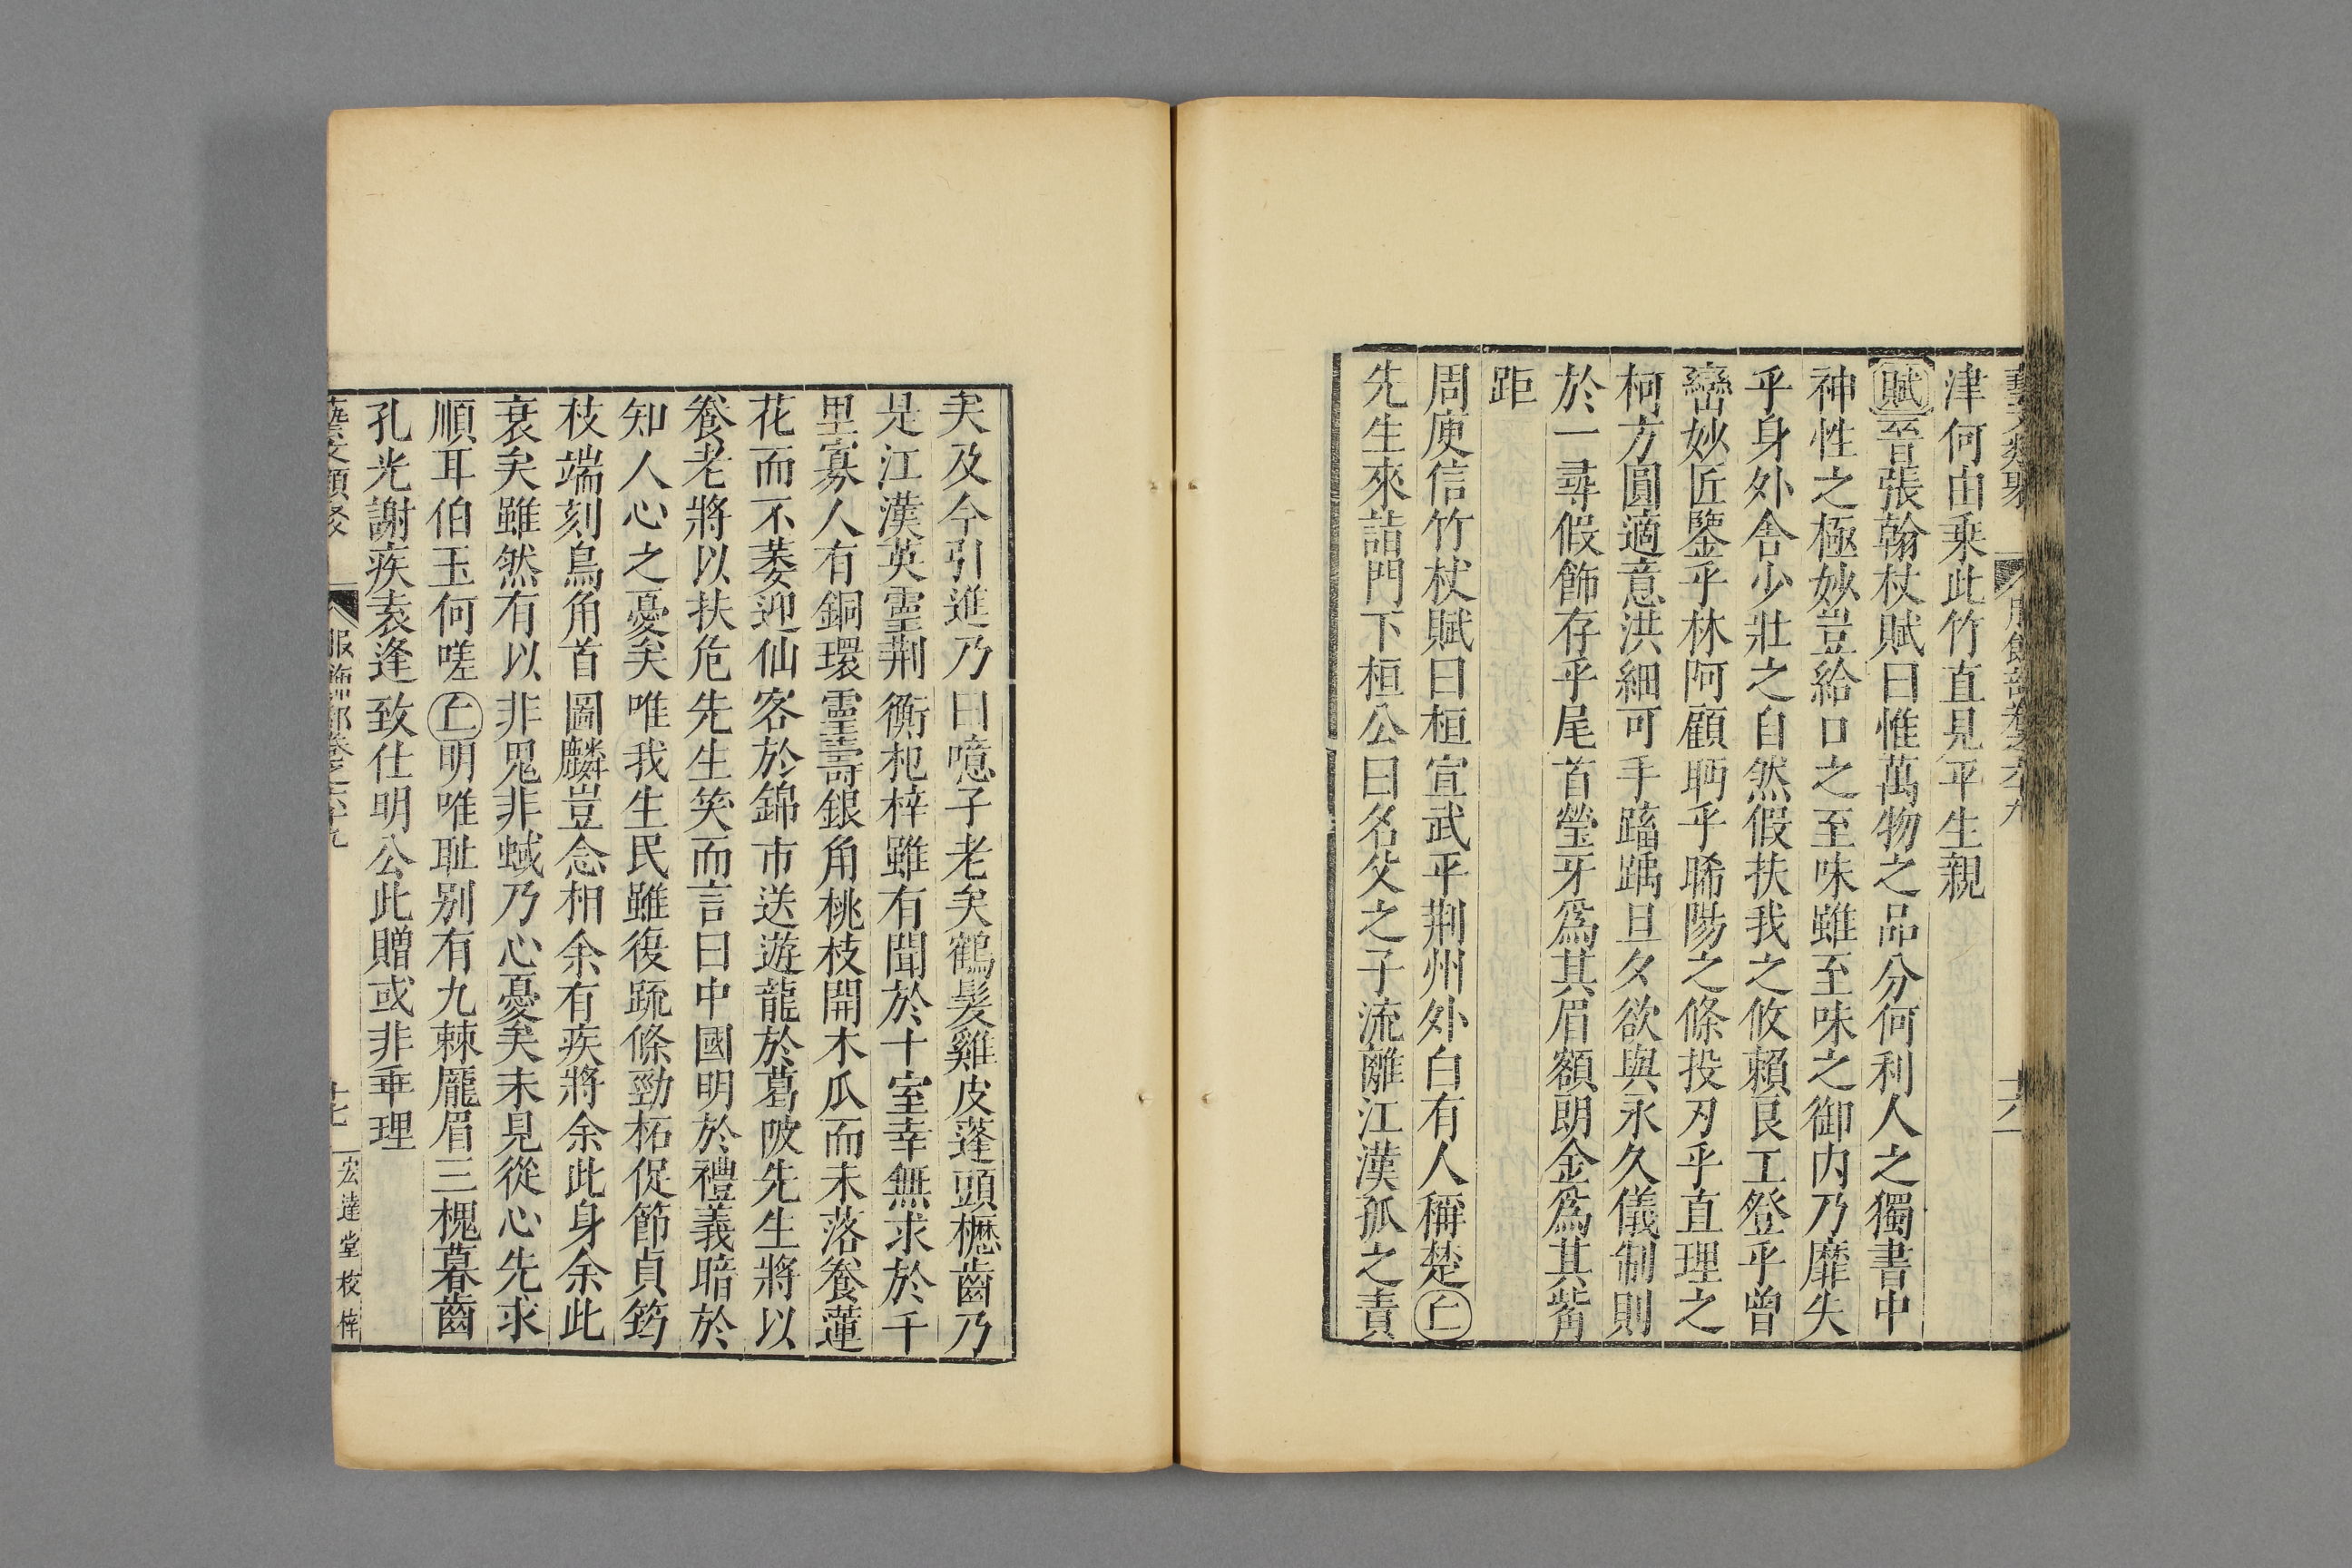 藝文類聚 服飾部卷之六十九 十六
津何由乘此竹直見平生親
賦晉張翰杖賦曰惟萬物之品分何利人之獨書中
神性之極妙豈給口之至味雖至味之御内乃靡失
乎身外舍少壯之自然假扶我之攸賴良工登乎曾
巒妙匠鑒乎林阿顧眄乎晞陽之條投刃乎直理之
柯方圓適意洪細可手踏踽旦夕欲與永久儀制則
於一尋假飾存乎尾首瑩牙爲其眉額朗金爲其觜
距
周庾信竹杖賦曰桓宣武平荆州外白有人稱楚
先生來詣門下桓公曰名父之子流離江漢孤之責
矣及今引進乃曰噫子老矣鶴髪雞皮蓬頭櫪齒乃
是江漢英靈荆衡杞梓雖有聞於十室幸無求於千
里寡人有銅環靈壽銀角桃枝開木瓜而未落養蓮
花而不萎迎仙客於錦市送遊龍於葛陂先生將以
養老將以扶危先生笑而言曰中國明於禮義暗於
知人心之憂矣唯我生民雖復疏條勁柘促節貞筠
枝端刻鳥角首圖麟豈念相余有疾將余此身余此
衰矣雖然有以非鬼非蜮乃心憂矣未見從心先求
順耳伯玉何嗟明唯耻别有九棘厖眉三槐暮齒
孔光謝疾袁逢致仕明公此贈或非乖理
藝文類聚 服飾部卷之六十九 十七 宏達堂校梓